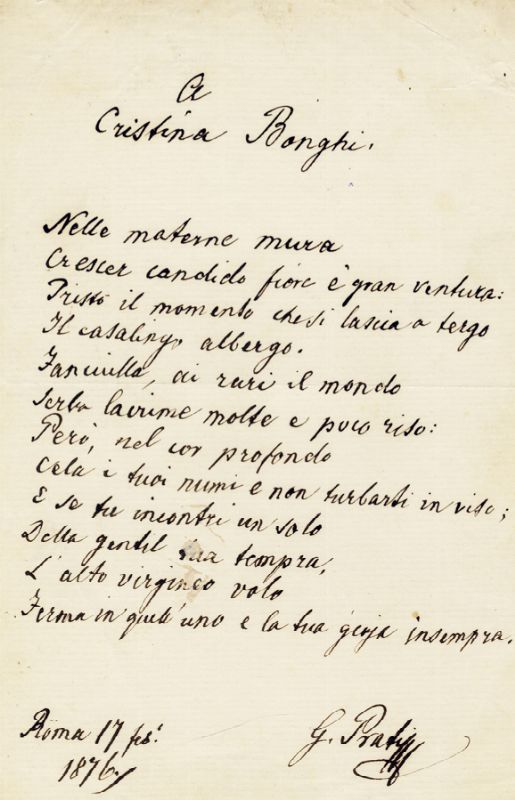 A
Cristina Bonghi.
Nelle materne mura
Crescer candido fiore è gran ventura:
Tristo il momento che si lascia a tergo
Il casalingo albergo.
Fanciulla, ai rari il mondo
Serba lacrime molte e poco riso:
Però, nel cor profondo
Cela i tuoi numi e non turbarti in viso;
E se tu incontri un solo
Della gentil tua tempra,
L'alto virgineo volo
Ferma in quell'uno e la tua gioja insempra.
Roma 17 feb.
1876
G. Prati